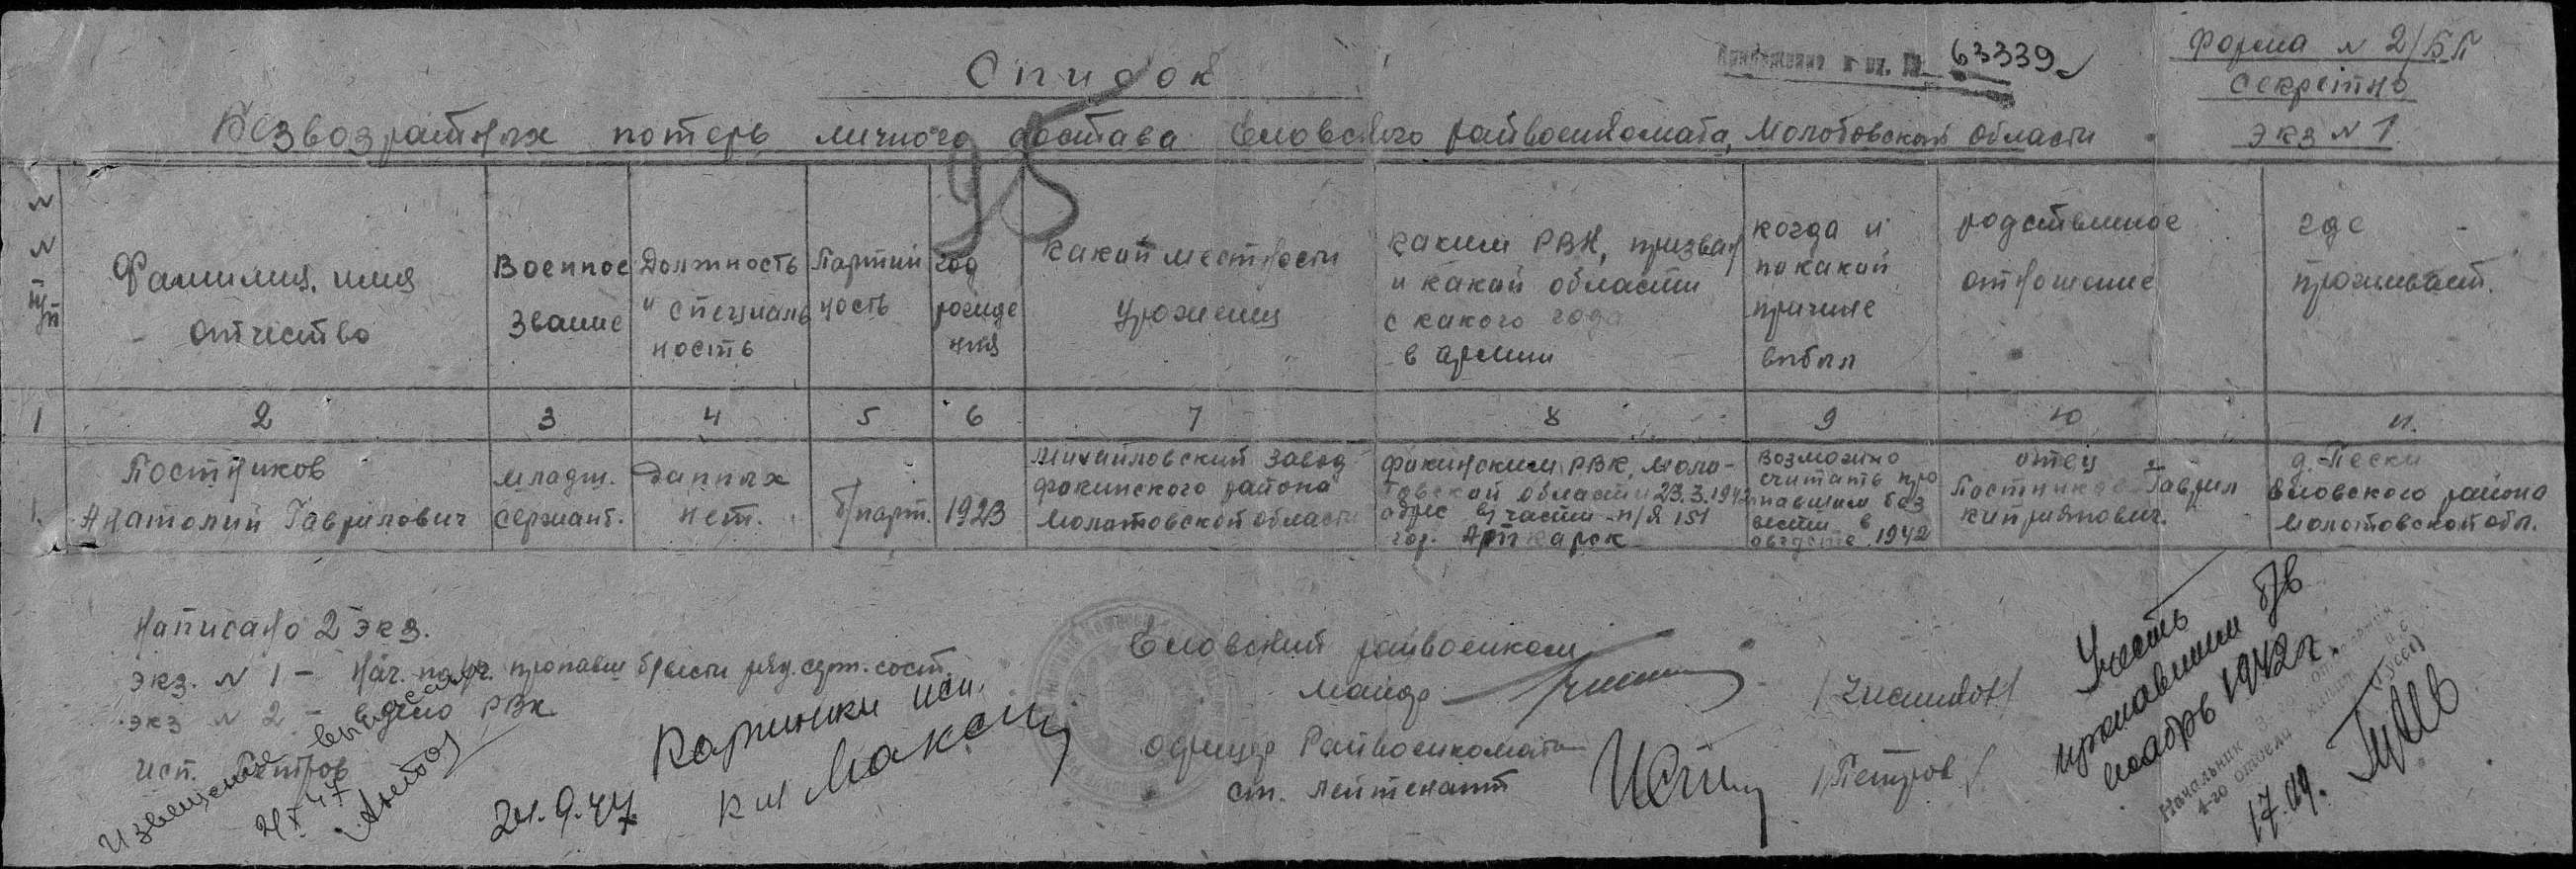 Форма № 2/БП
Секретно
экз № 1
Приложение к вх. № 63339
Список
Безвозратных потерь личного состава Еловского райвоенкомата, Молотовской области
95
№ № п/п
Фамилия, имя отчество
Военное звание
Должность и специаль ность
Партий ность
год рожде ния
какой местности уроженец
каким РВК, призван и какой области с какого года в армии
когда и по какой причине выбыл
родственное отношение
где проживает.
1 2 3 4 5 6 7 8 9 10 11.
1.
Постников
Анатолий Гаврилович
младш.
сержант.
данных
нет.
б/парт.
1923
Михайловский завод
Фокинского района
Молотовской области
Фокинским РВК, Моло-
товской области 23.3.1942
адрес в/части п/я 151
гор.
возможно
считать про
павшим без
вести в
августе 1942
отец
Постников Гаврил
Киприянович.
д. Пески
Еловского района
Молотовской обл.
Написано 2 экз.
экз. № 1 – Нач. пропавш б/вести ряд. серж. сост.
экз № 2 – в дело РВК
исп. Петров
Извещение выписано
24.9.47
Еловский райвоенком
майор
офицер Райвоенкомата
ст. лейтенант
/Петров/
Учесть
пропавшим б/в
ноябрь 1942 г.
Начальник 3
4-го отдела
17.